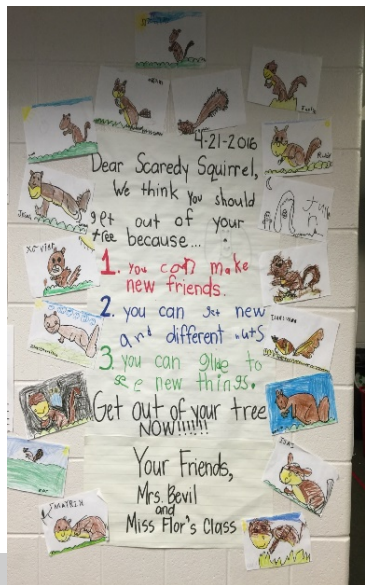 4-21-2016
Dear Scaredy Squirrel,
We think you should
get out of your
tree because...
1. you can make
new friends.
2. you can get new
and different nuts
3. you can glue to
see new things.
Get out of your tree
NOW!!!!!!
Your Friends,
Mrs. Bevil
and
Miss Flor's Class